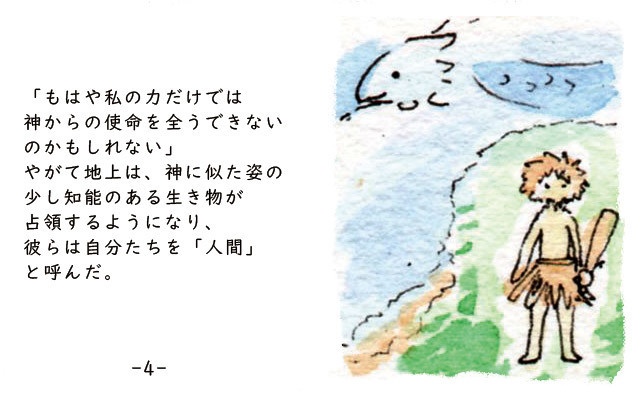 「もはや私の力だけでは
神からの使命を全うできない
のかもしれない」
やがて地上は、神に似た姿の
少し知能のある生き物が
占領するようになり、
彼らは自分たちを「人間」
と呼んだ。
-4-